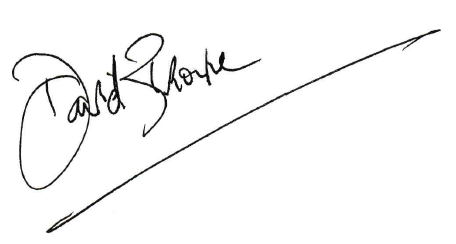 David Thorpe